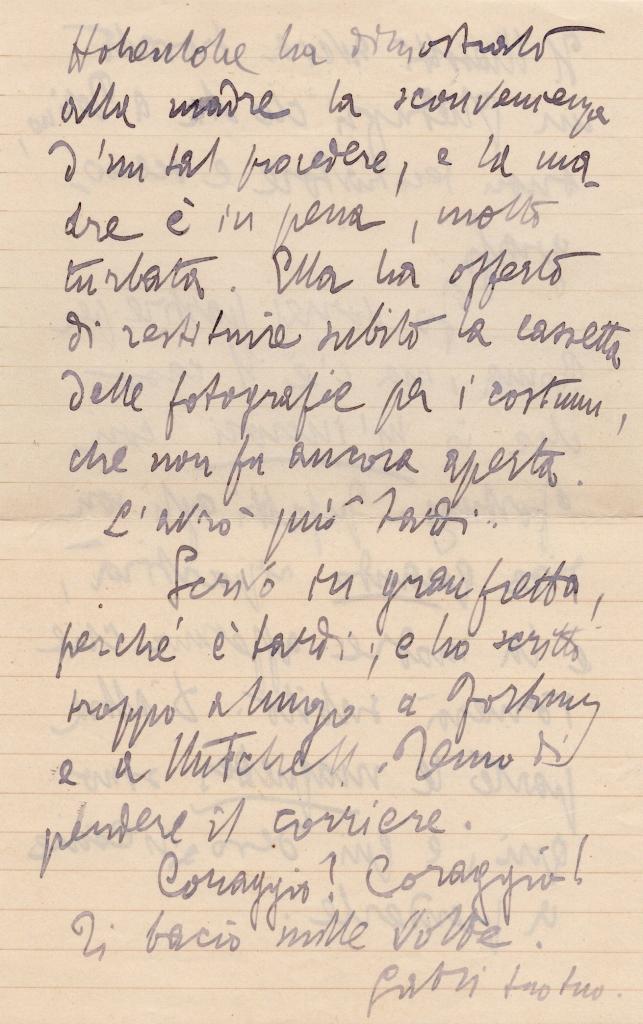 Hohenlohe ha dimostrato
alla madre la sconvenienza
d'un tal procedere, e la ma-
dre è in pena, molto
turbata. Ella ha offerto
di restituire subito la cassetta
delle fotografie per i costumi,
che non fu ancora aperta.
L'avrò più tardi.
Scrivo in gran fretta,
perché è tardi; e ho scritto
troppo a lungo a Fortuny
e a Mitchell. Temo di
perdere il corriere.
Coraggio! Coraggio!
Ti bacio mille volte.
Gabri tuo tuo.